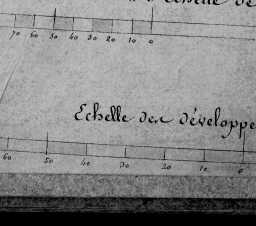 70 60 50 40 30 20 10 0
Echelle des développe
60 50 40 30 20 10 0